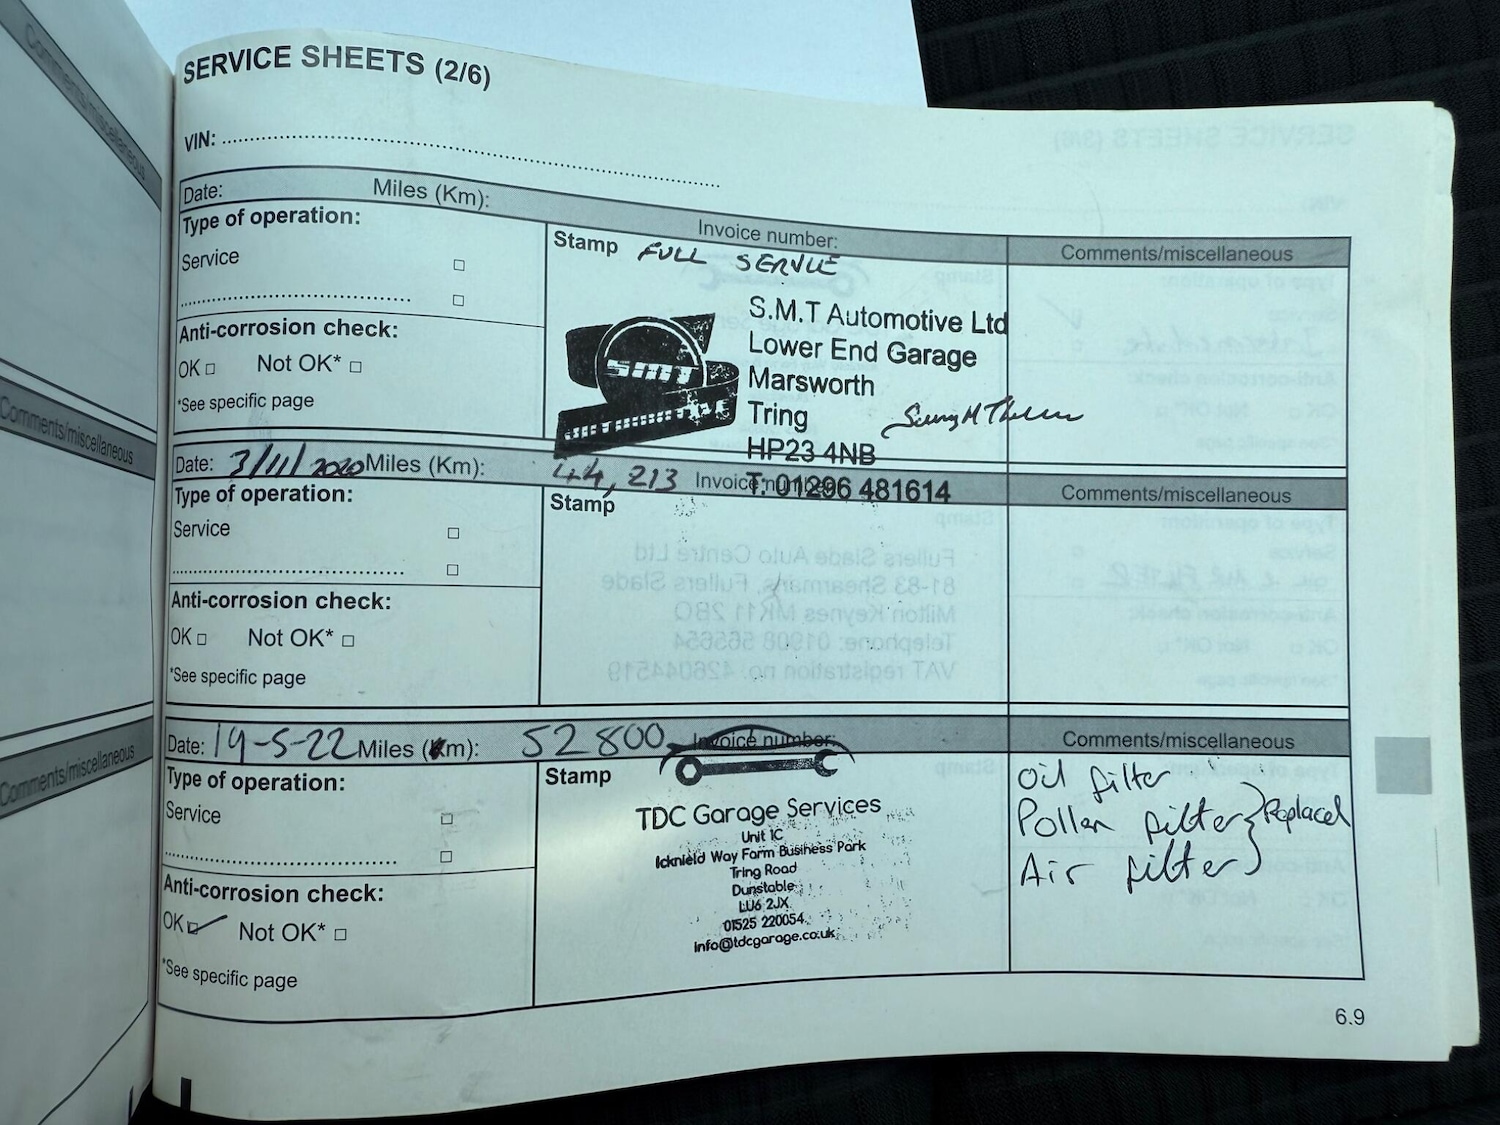 SERVICE SHEETS (2/6)
VIN: ................
Date: Miles (Km): Invoice number:
Comments/miscellaneous
Type of operation:
Service □
................ □
Anti-corrosion check:
OK □ Not OK* □
*See specific page
Stamp FULL SERVICE
S.M.T Automotive Ltd
Lower End Garage
Marsworth
Tring
HP23 4NB
T: 01296 481614
SMT
AUTOMOTIVE
Date: 3/11/2020 Miles (Km): 44,213 Invoice number:
Comments/miscellaneous
Type of operation:
Service □
................ □
Anti-corrosion check:
OK □ Not OK* □
*See specific page
Stamp
Date: 19-5-22 Miles (Km): 52800 Invoice number:
Comments/miscellaneous
Type of operation:
Service □
................ □
Anti-corrosion check:
OK ☑ Not OK* □
*See specific page
Stamp
TDC Garage Services
Unit 1C
Icknield Way Farm Business Park
Tring Road
Dunstable
LU6 2JX
01525 220054
info@tdcgarage.co.uk
Oil filter
Pollen filter } Replaced
Air filter
6.9
Comments/miscellaneous
Comments/miscellaneous
Comments/miscellaneous
SERVICE SHEETS (3/6)
Fullers Slade Auto Centre Ltd
81-83 Shearmans, Fullers Slade
Milton Keynes MK11 2BQ
Telephone: 01908 565654
VAT registration no. 426044519